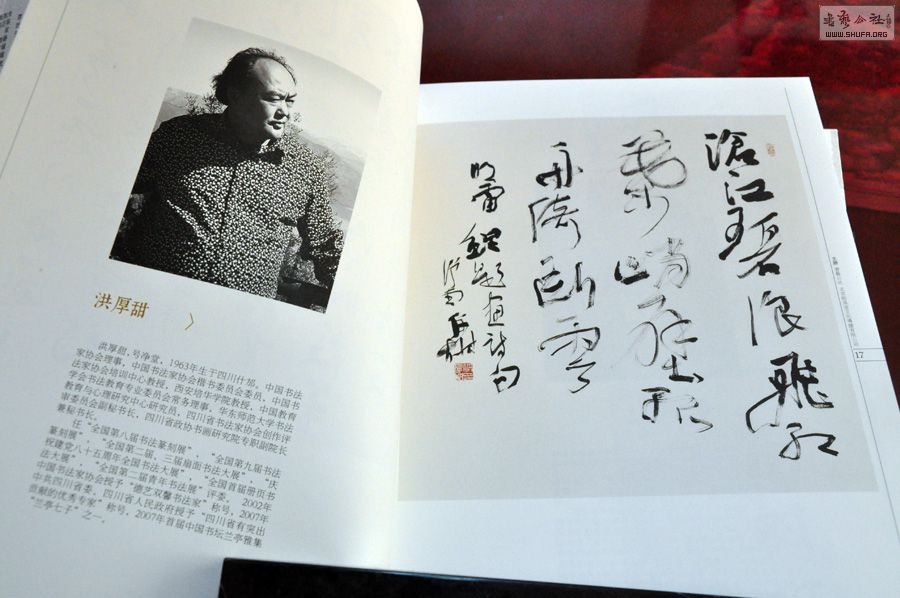 洪厚甜
洪厚甜，号净堂，1963年生于四川什邡。中国书法
家协会理事，中国书法家协会楷书委员会委员，中国书
法家协会培训中心教授、西安培华学院教授，中国教育
学会书法教育专业委员会常务理事，华东师范大学书法
教育与心理研究中心研究员，四川省书法家协会创作评
审委员会副秘书长，四川省政协书画研究院专职副院长
兼秘书长。
任“全国第八届书法篆刻展”，“全国第九届书法
篆刻展”，“全国第二届、三届扇面书法大展”，“庆
祝建党八十五周年全国书法大展”，“全国首届册页书
法大展”，“全国第二届青年书法展”评委。2002年
中国书法家协会授予“德艺双馨书法家”称号，2007年
中共四川省委、四川省人民政府授予“四川省有突出
贡献的优秀专家”称号，2007年首届中国书坛兰亭雅集
“兰亭七子”之一。
滄江碧浪飛紅
葉
舟
雪
題畫詩句
17
書藝公社
WWW.SHUFA.ORG